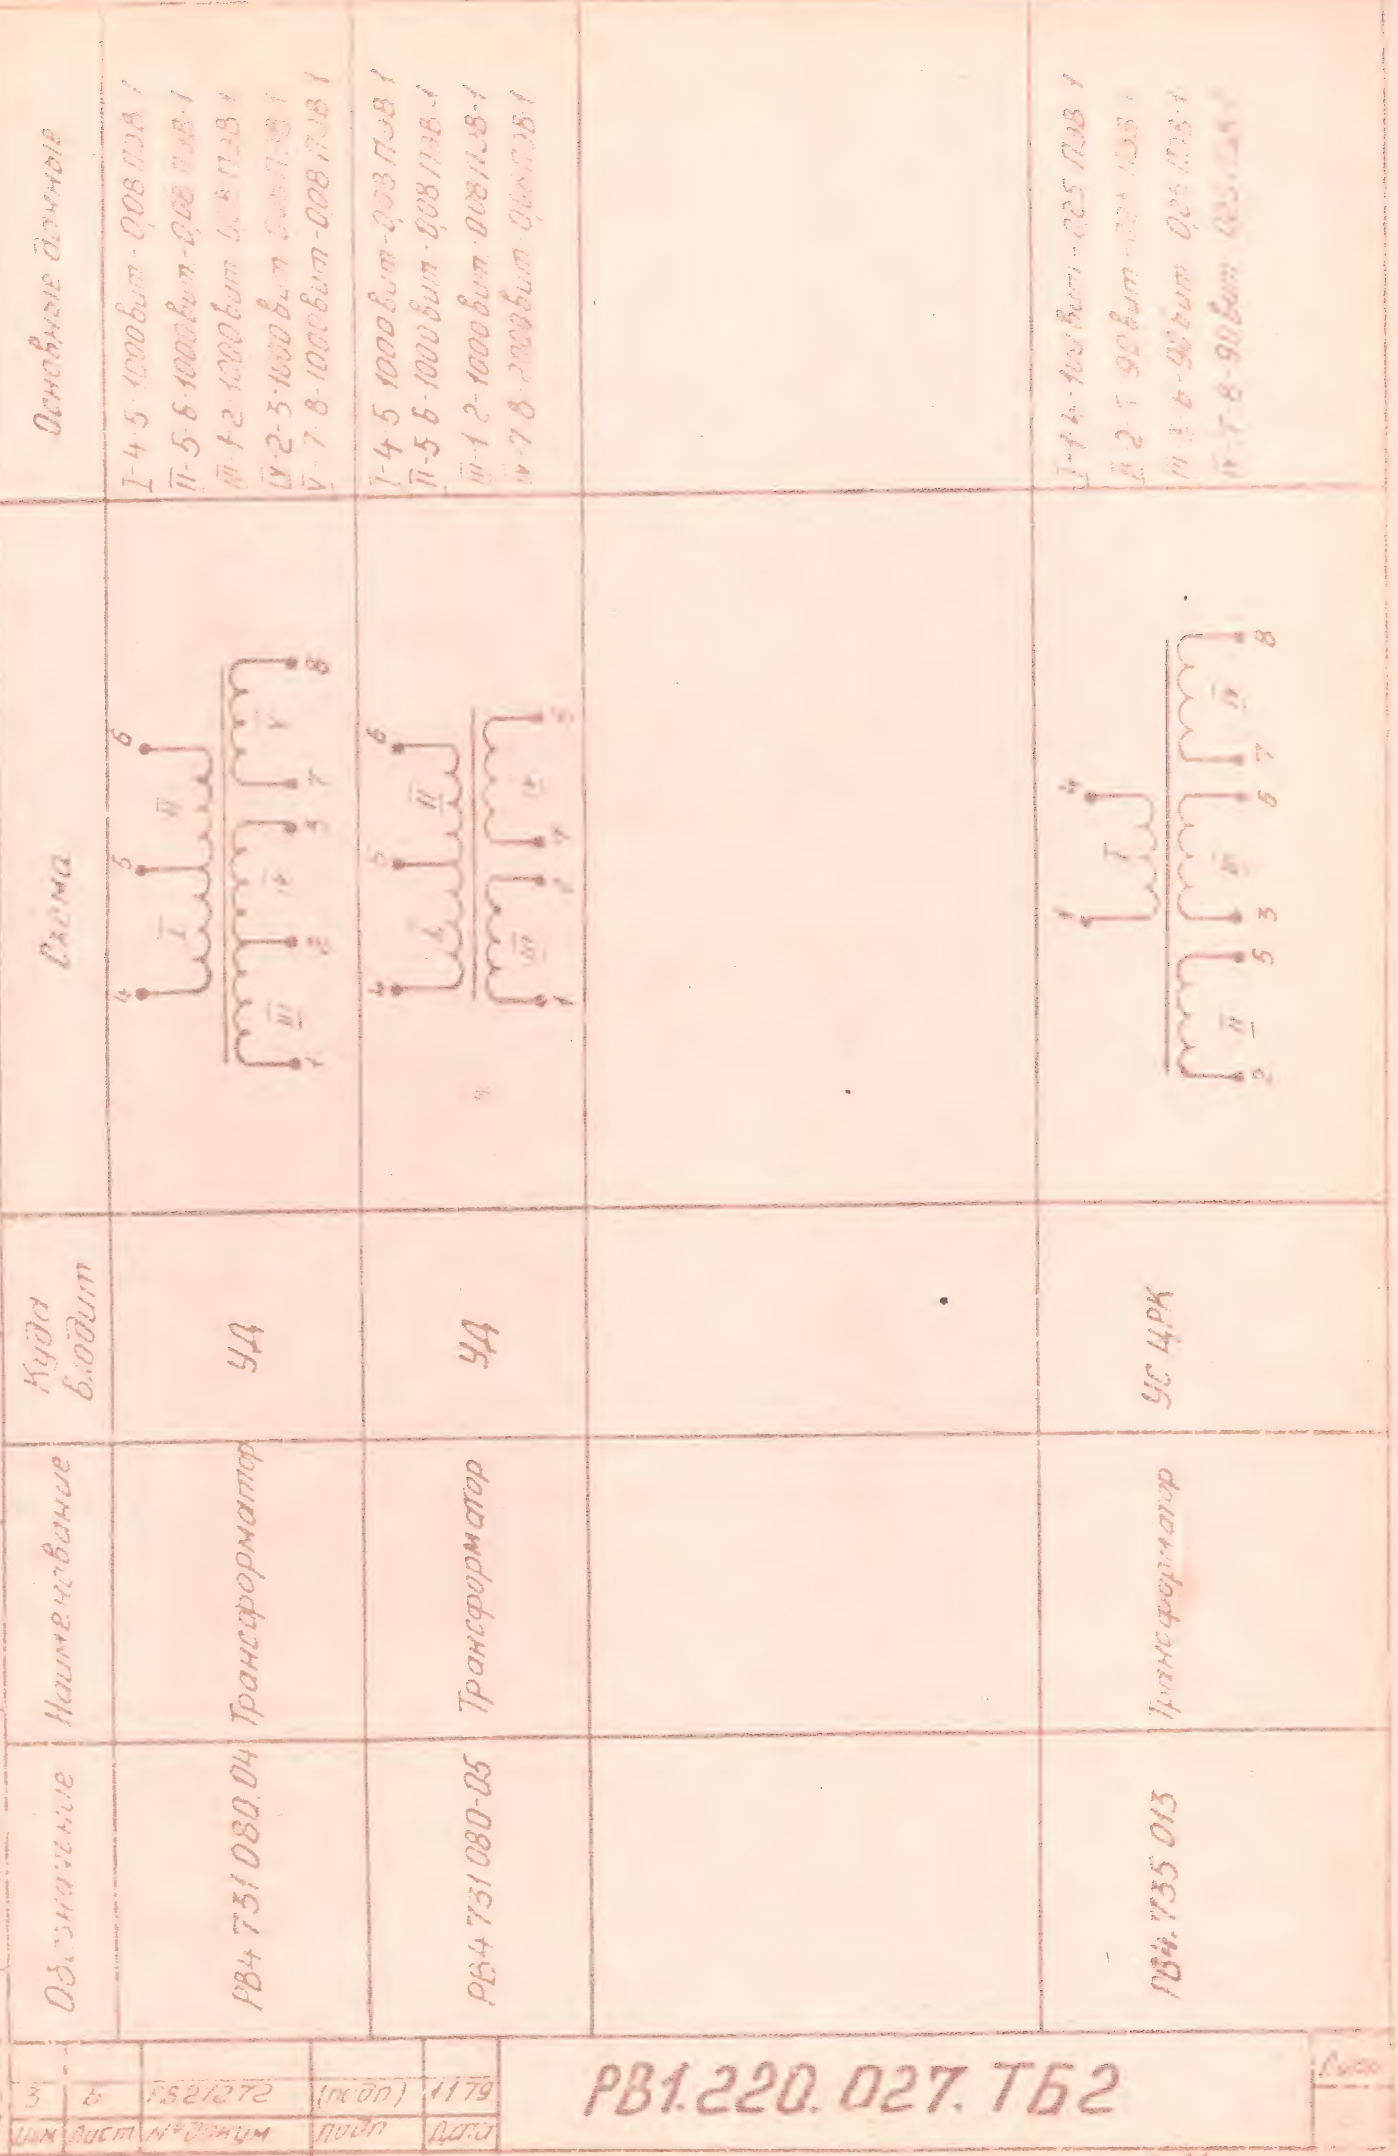 Обозначение
Наименование
Куда
входит
Схема
Основные данные
РВ4 731 080.04
Трансформатор
УД
4 5 6
I II
III IV V
1 2 3 7 8
I-4-5-1000вит-0,08 ПЭВ-1
II-5-6-1000вит-0,08 ПЭВ-1
III-1-2-1000вит ПЭВ-1
IV-2-3-1000вит
V-7-8-1000вит-0,08 ПЭВ 1
РВ4 731 080-05
Трансформатор
УД
4 5 6
I II
III IV
1 2 7 8
I-4 5 1000вит-0,08 ПЭВ 1
II-5 6-1000вит-0,08 ПЭВ-1
III-1 2-1000вит-0,08 ПЭВ-1
IV-7 8-2000вит
РВ4.735 013
Трансформатор
УС ЦРК
1 4
I
II III IV
2 5 3 6 7 8
I-1 4-100вит-0,25 ПЭВ 1
II 2 5 90вит
III 3 6-90вит 0,25 ПЭВ-1
IV-7-8-90вит
3 6 РВ21272 (подп) 1179
Изм Лист № докум подп Дата
РВ1.220.027.ТБ2
Лист